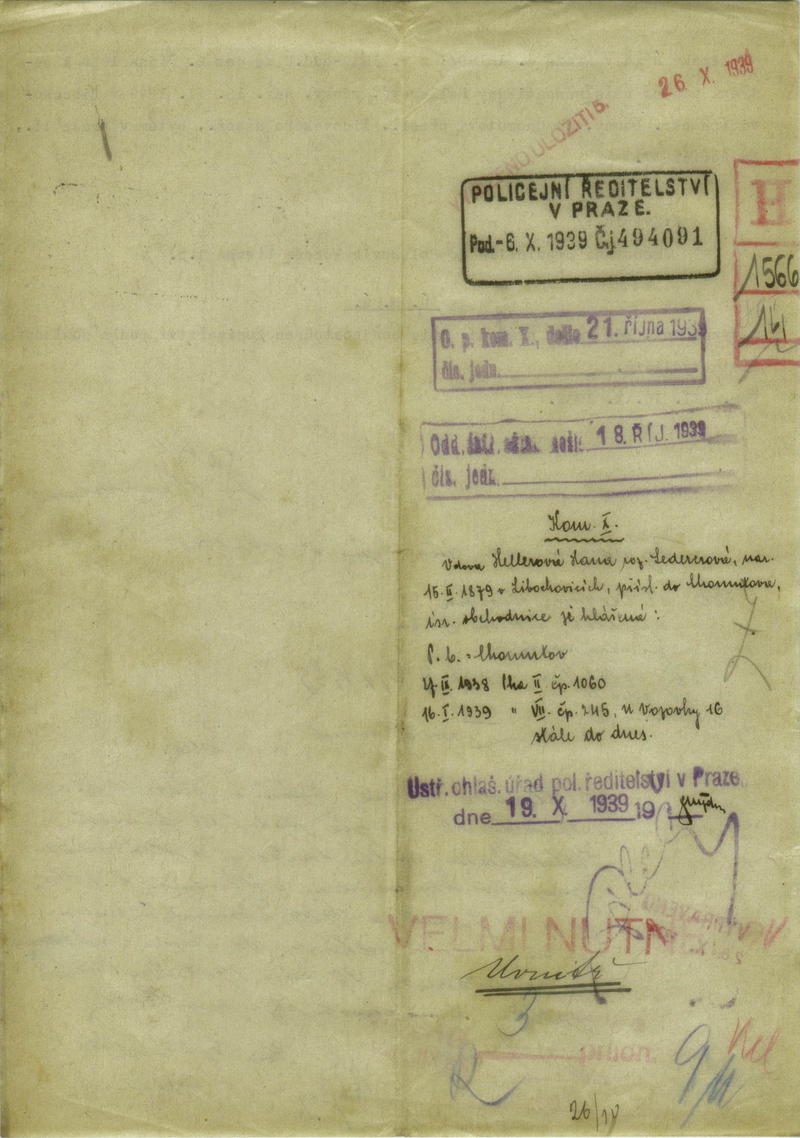 26 X. 1939
ULOŽITI 5.
POLICEJNÍ ŘEDITELSTVÍ
V PRAZE.
Pod.-6. X. 1939 Čj494091
H
1566
14
O. p. kom. X., došlo 21. října 1939
čís. jedn.
Odd. došlo 18. ŘÍJ. 1939
čís. jedn.
Kom. X.
Vdova Hellerová Hana roz. Ledererová, nar.
15.II.1879 v Libochovicích, přísl. do Chomutova,
isr. obchodnice je hlášená :
P. b. = Chomutov
IX. 1938 Pha II čp. 1060
16.I.1939 " VII. čp. 245, u Vozovky 16
stále do dnes.
Ústř. ohlaš. úřad pol. ředitelství v Praze
dne 19. X. 1939 19
VELMI NUTN
Uvnitř
3
příloh.
26/IV